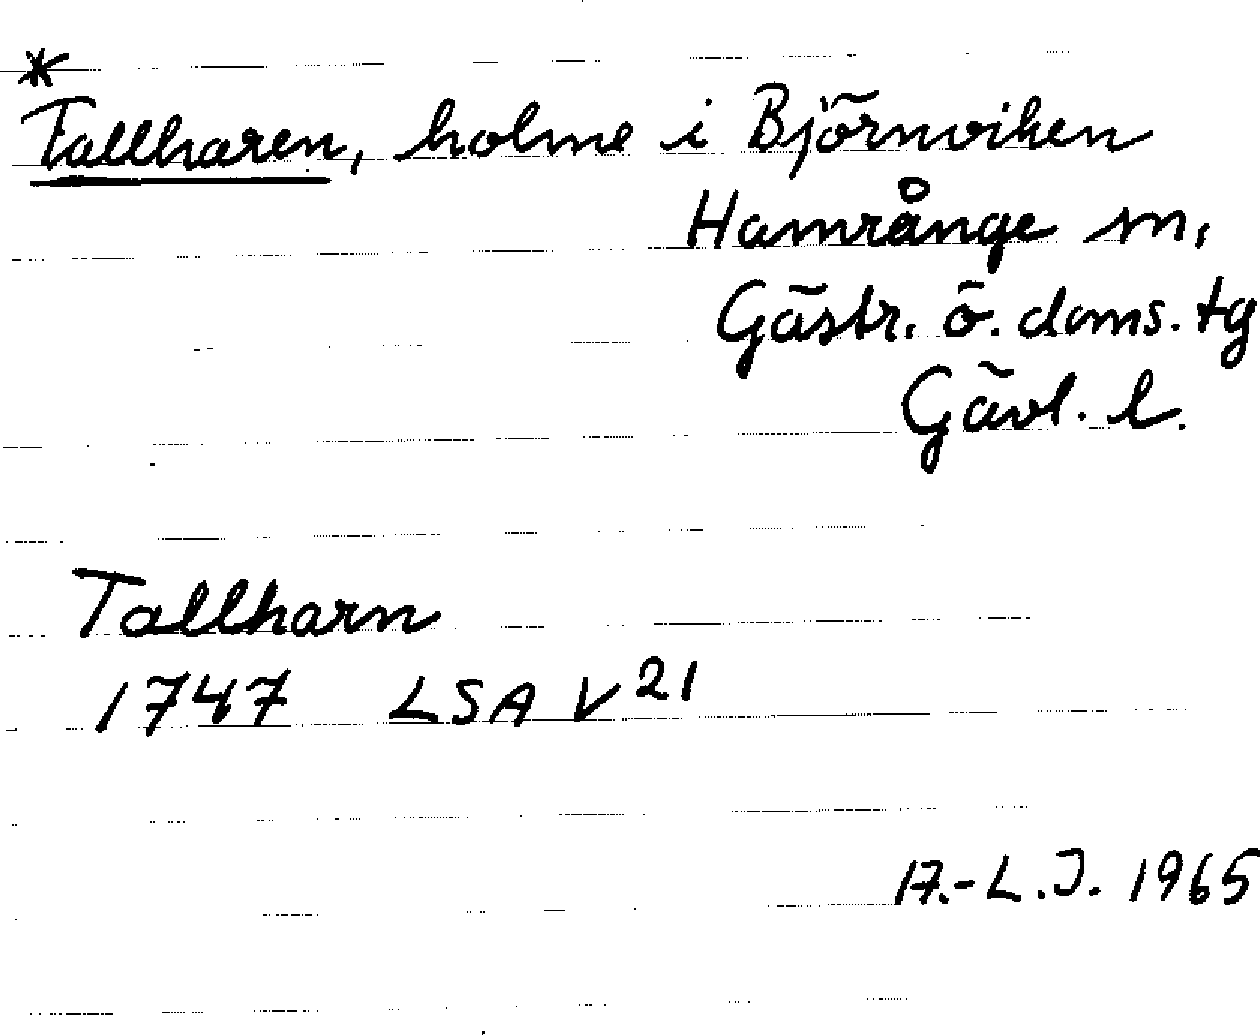 *
Tallharen, holme i Björnviken
Hamrånge sn,
Gästr. ö. doms. tg
Gävl. l.
Tallharn
1747 LSA V 21
17.-L.J. 1965